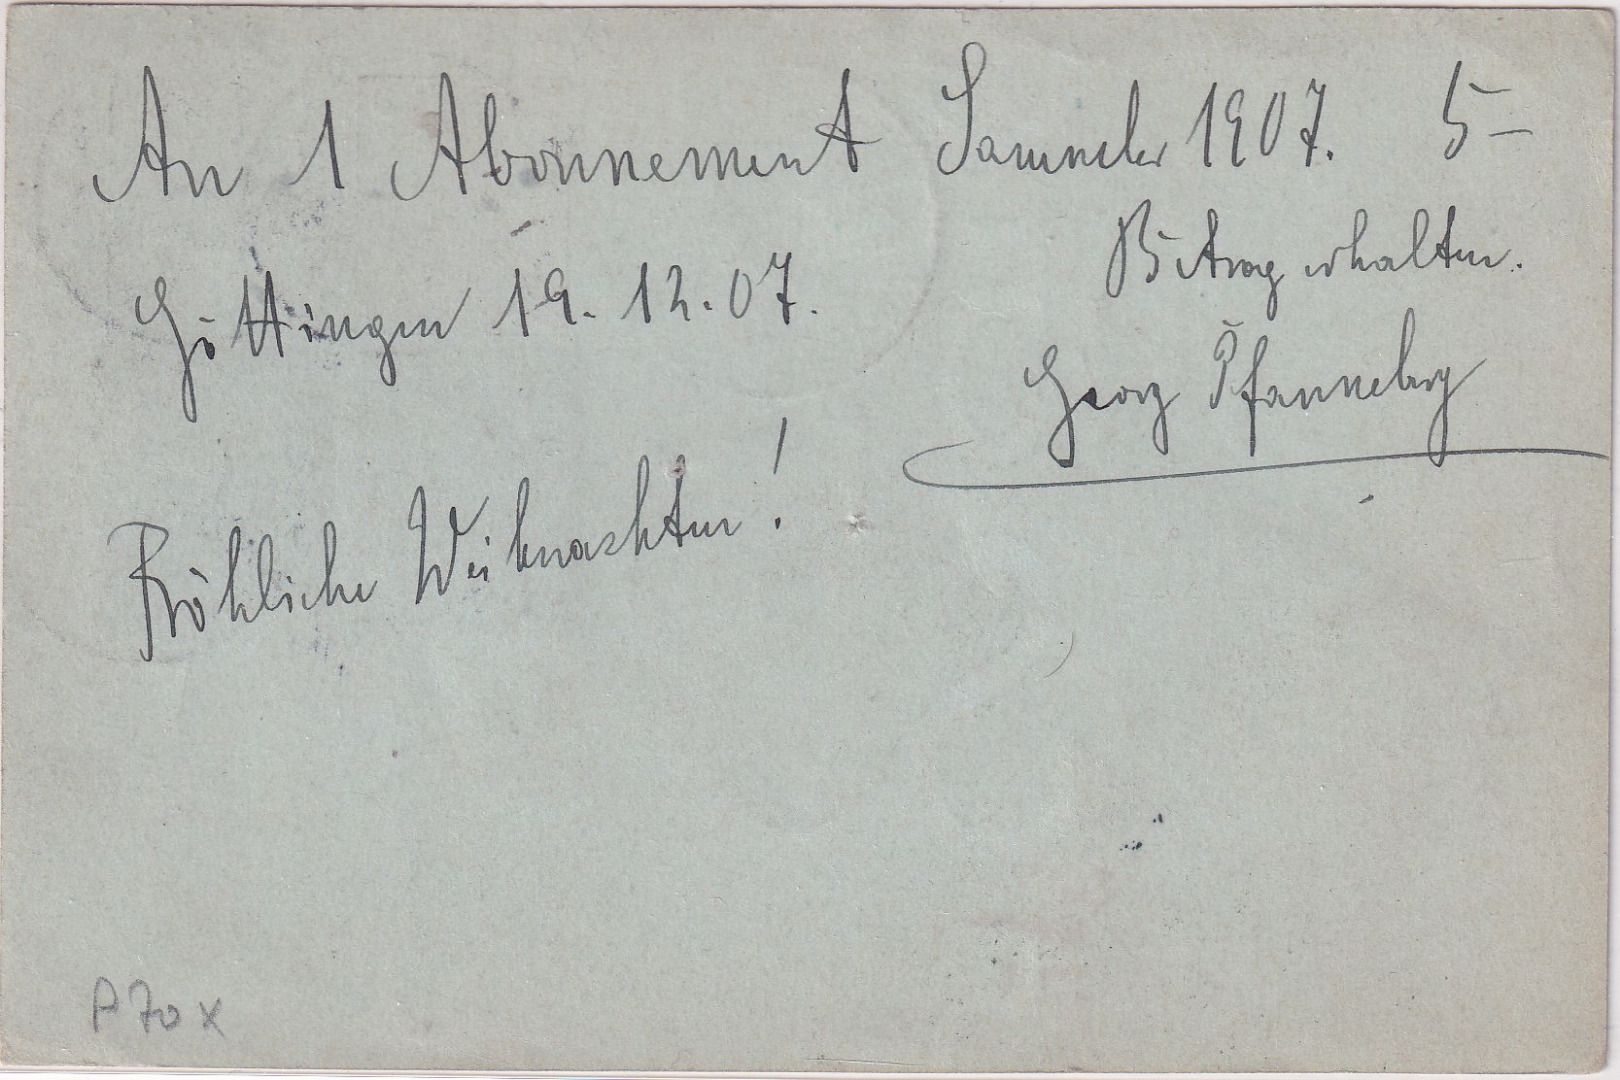 An 1 Abonnement Sammler 1907. 5–
Betrag erhalten.
Göttingen 19. 12. 07.
Georg Pfanneberg
Fröhliche Weihnachten!
P 70 x